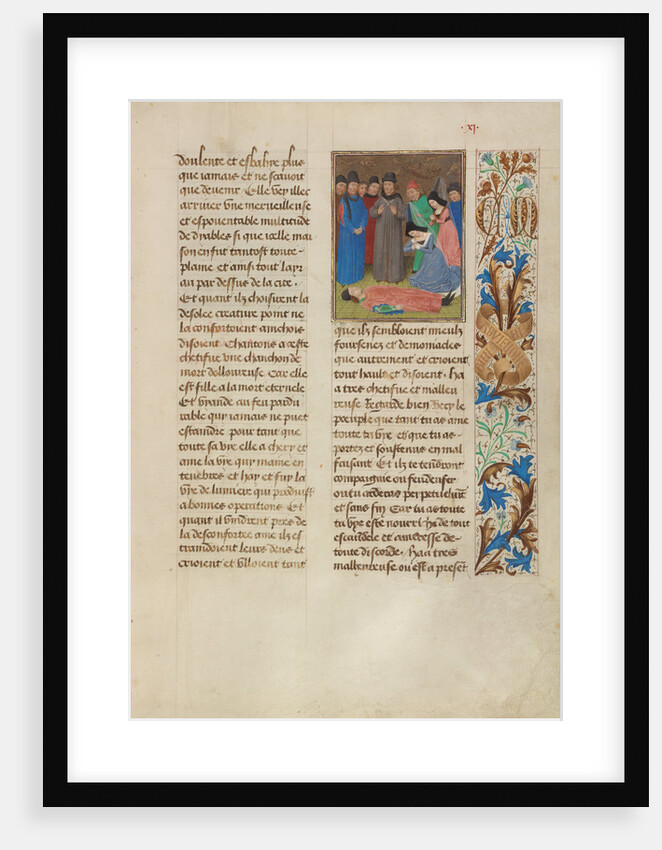 ·xj·
doulente et esbahye plus
que iamais et ne scauoit
que deuenir Elle vey illec
arriuer vne merueilleuse
et espouentable multitude
de dyables si que icelle mai
son en fut tantost toute
plaine et ainsi tout layr
au par dessus de la cite.
Et quant ilz choisirent la
desolee creature point ne
la confortoient ainchois
disoient Chantons a ceste
chetifue vne chanchon de
mort dolloureuse Car elle
est fille a la mort eternele
Et viande au feu pardu
rable qui iamais ne puet
estaindre pour tant que
toute sa vye elle a chery et
ame la vye qui maine en
tenebres et hay et fuy la
vye de lumiere qui produist
a bonnes operations Et
quant il vindrent pres de
la desconfortee ame ilz es
traindoient leurs dens et
crioient et vlloient tant
que ilz sembloient mieulx
foursenez et demoniacles
que autrement et crioient
tout hault et disoient. Ha
a tres chetifue et malleu
reuse Regarde bien Vecy le
poeuple que tant tu as ame
toute ta vye et que tu as
portez et soustenus en mal
faisant Et ilz te tendront
compaignie ou feu denfer
ou tu arderas perpetuelment
et sans fin Car tu as toute
ta vye este nourri he de tout
escandele et ameresse de
toute discorde. Haa tres
malheureuse ou est a present